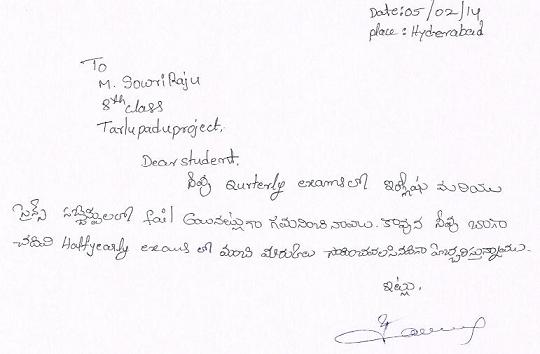 Date:05/02/14
place : Hyderabad
To
M. Sowri Raju
8th class
Tarlupadu project.
Dear student.
నీవు Qurterly exams లో ఇంగ్లీషు మరియు
సైన్స్ సబ్జెక్టులలో fail అయినట్లుగా గమనించినాము. కావున నీవు బాగా
చదివి Halfyearly exams లో మంచి మార్కులు సాధించవలసినదిగా హెచ్చరిస్తున్నాము.
ఇట్లు,